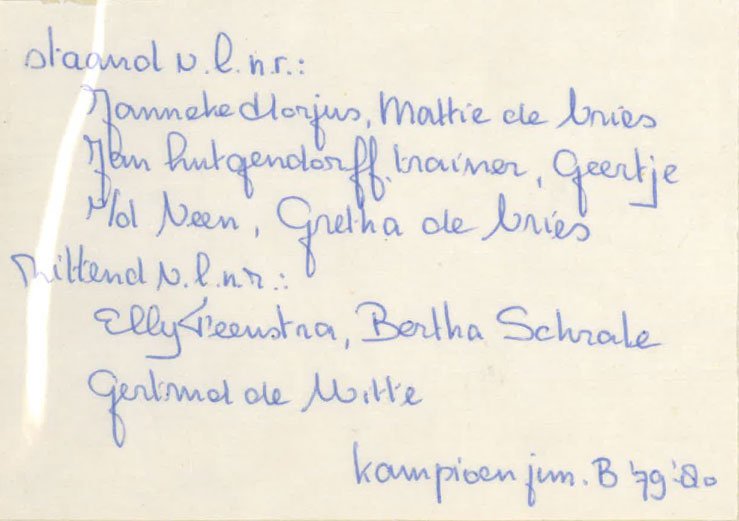 staand v.l.n.r.:
Janneke Horjus, Mattie de Vries
Jan Lutgendorff, trainer, Geertje
v/d Veen, Gretha de Vries
zittend v.l.n.r.:
Elly Feenstra, Bertha Schrale
Gertrud de Witte
kampioen jun. B '79-'80